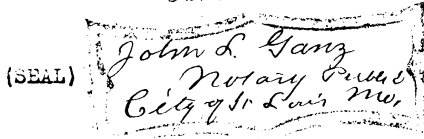 (SEAL)
John L. Ganz
Notary Public
City of St Louis Mo,